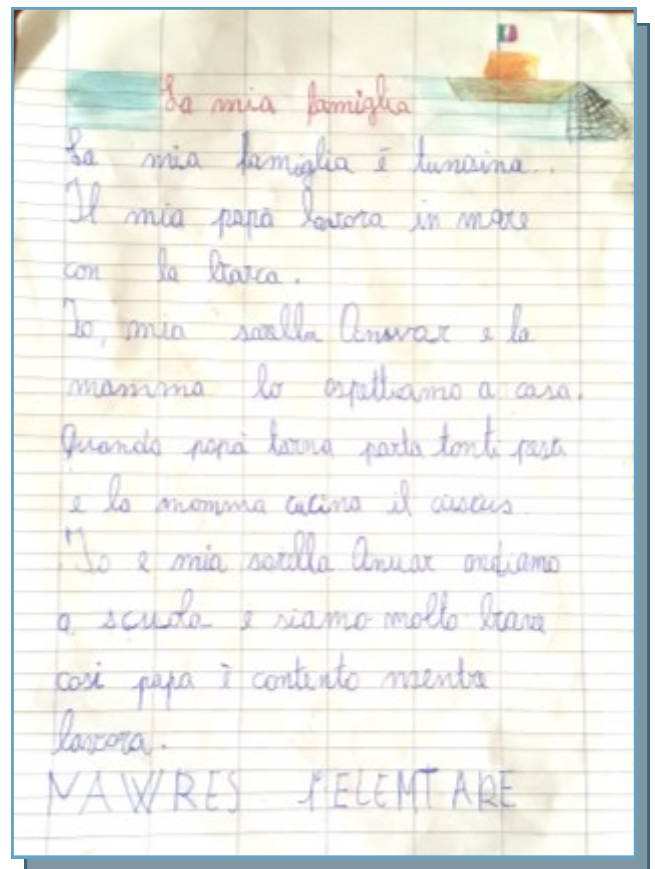 La mia famiglia
La mia famiglia è tunisina..
Il mia papà lavora in mare
con la barca.
Io, mia sorella Anwar e la
mamma lo aspettiamo a casa.
Quando papà torna porta tanti pesci
e la mamma cucina il cuscus.
Io e mia sorella Anuar andiamo
a scuola e siamo molto brave
così papà è contento mentre
lavora.
NAWRES 1ªELEMTARE